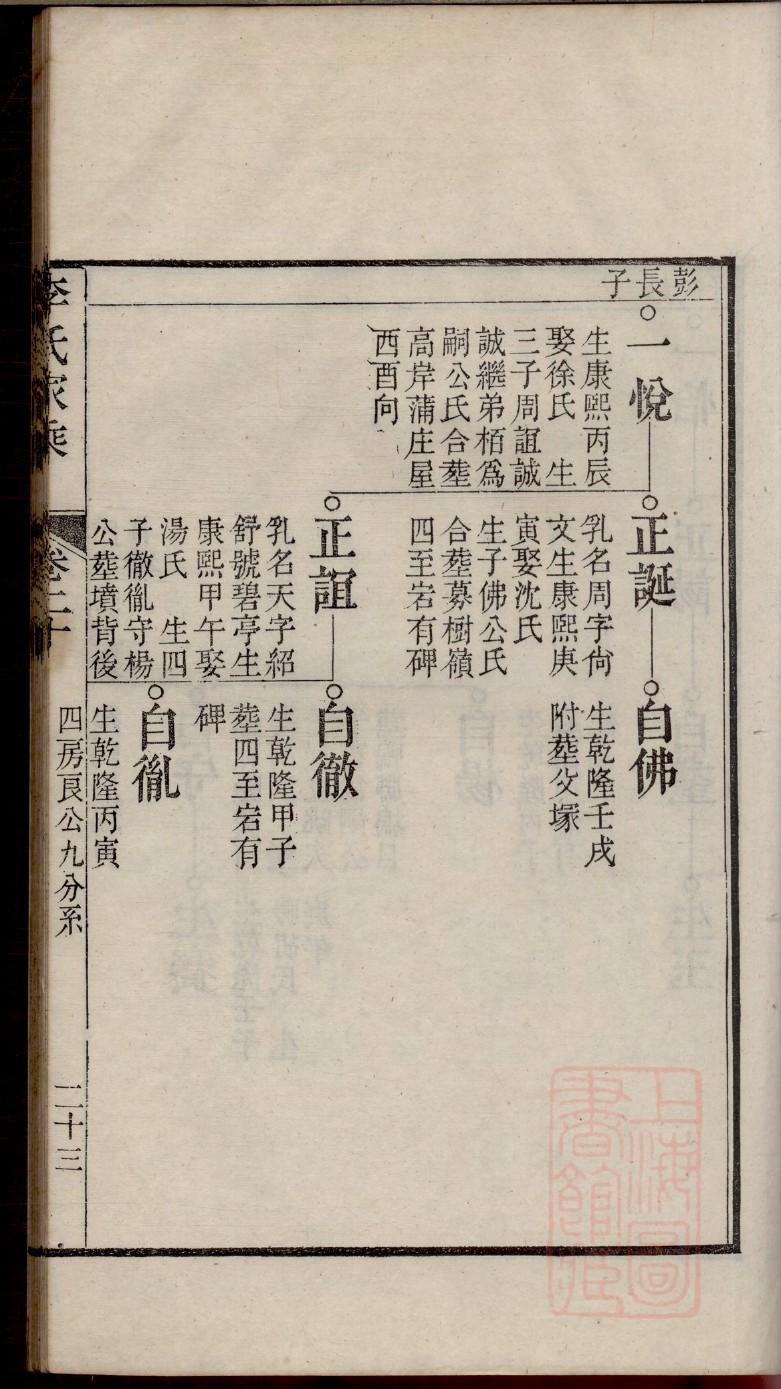 彭長子
一悅
生康熙丙辰
娶徐氏　生
三子周誼誠
誠繼弟栢為
嗣公氏合塟
高岸蒲庄屋
西酉向
正誕
乳名周字尙
文生康熙庚
寅娶沈氏
生子佛公氏
合塟募樹嶺
四至宕有碑
自佛
生乾隆壬戌
附塟父塚
正誼
乳名天字紹
舒號碧亭生
康熙甲午娶
湯氏　生四
子徹㣧守楊
公塟墳背後
自徹
生乾隆甲子
塟四至宕有
碑
自㣧
生乾隆丙寅
李氏家乘
卷二十
四房良公九分系
二十三
上海圖書館藏